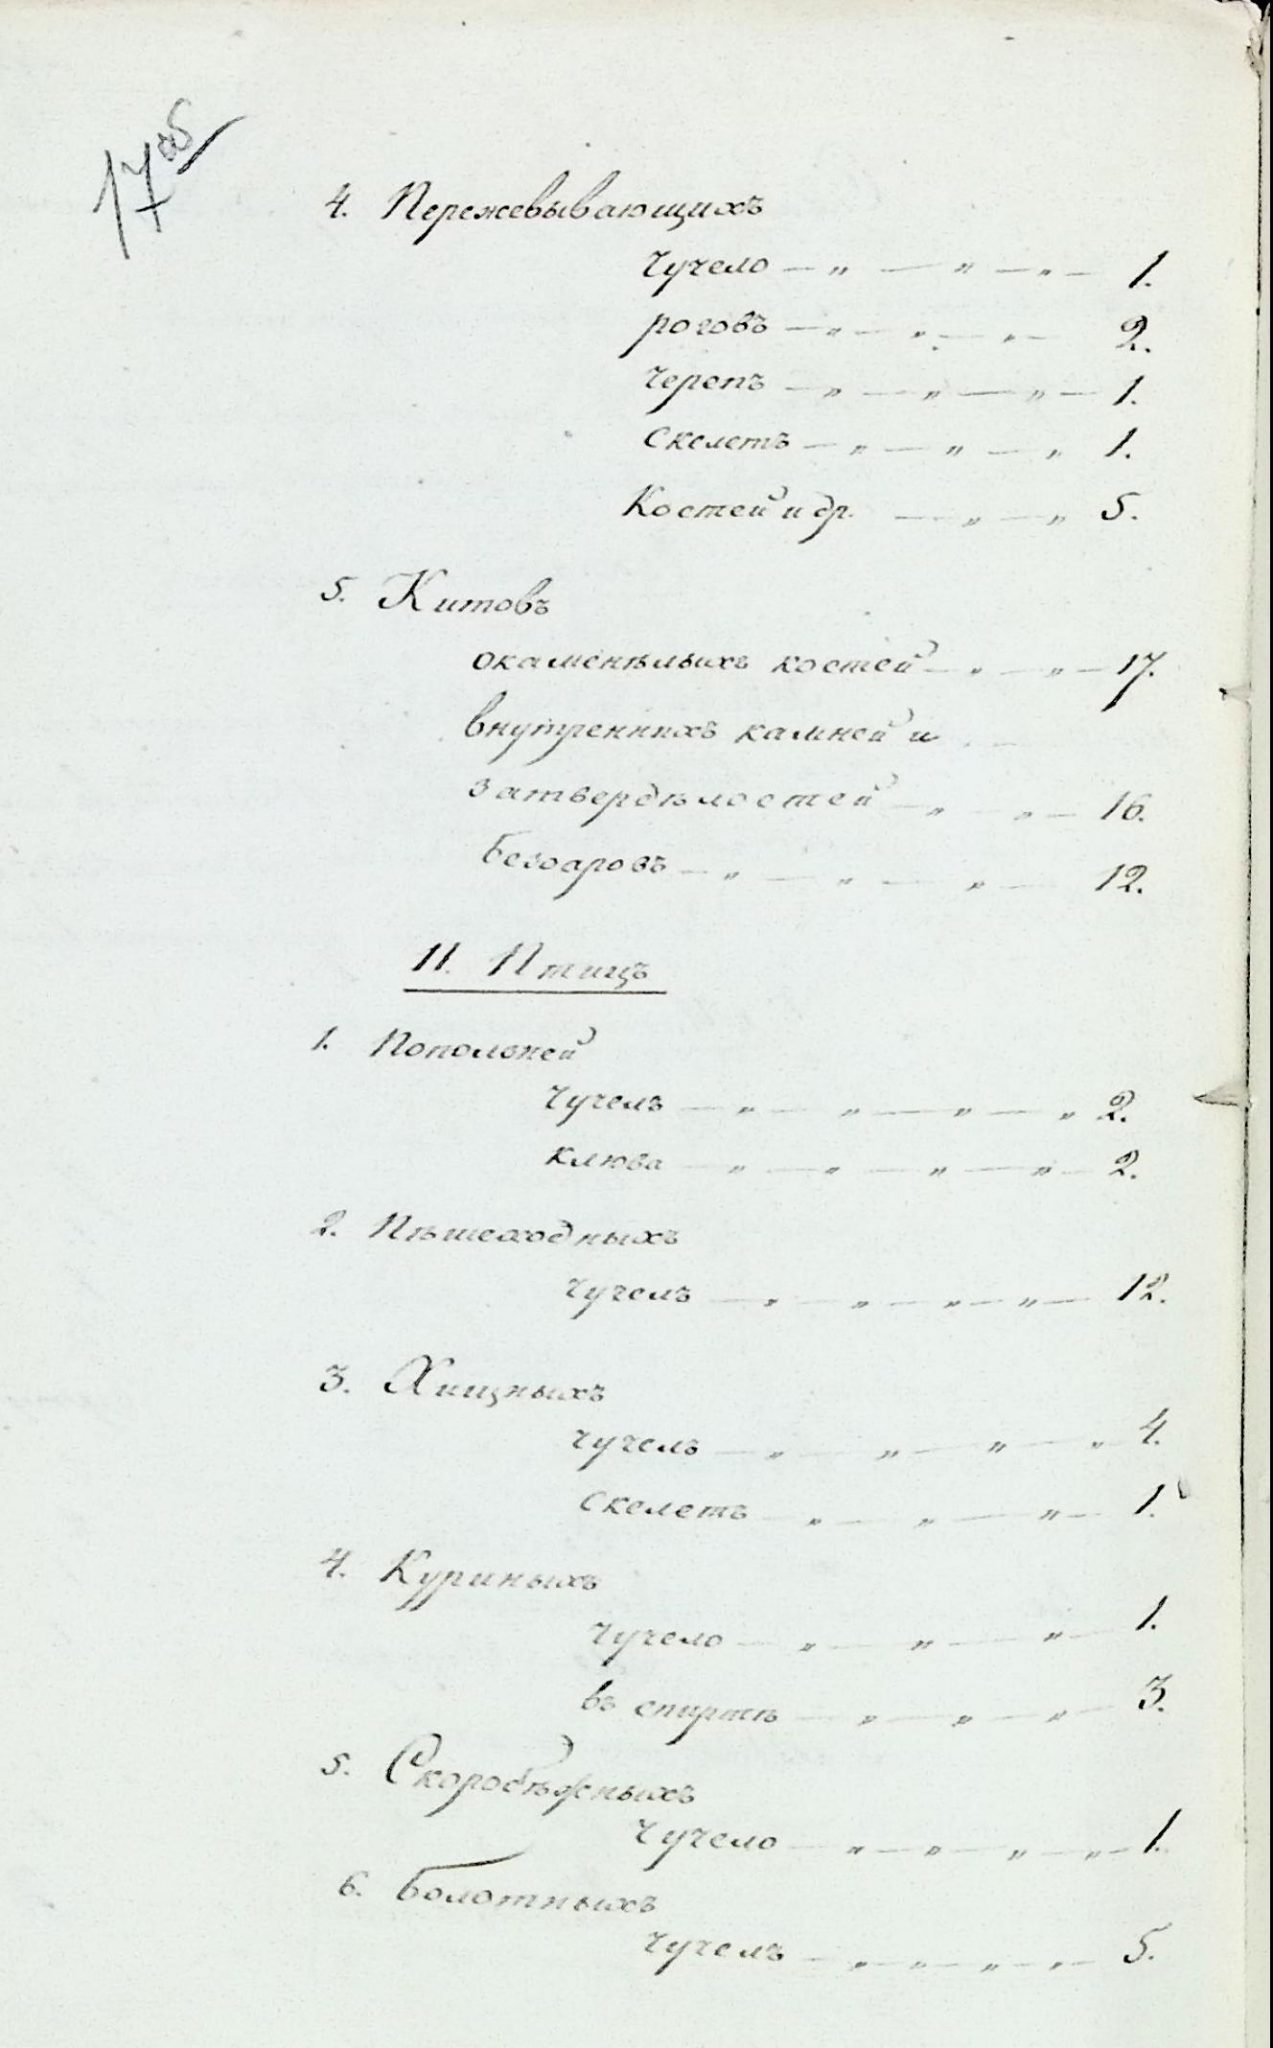 17об
4. Пережевывающихъ
Чучело — „ — „ — „ — 1.
роговъ — „ — „ — „ — 2.
Черепъ — „ — „ — „ — 1.
Скелетъ — „ — „ — „ 1.
Костей и др. — „ — „ 5.
5. Китовъ
окаменѣлыхъ костей — „ — „ — 17.
внутреннихъ камней и
затвердѣлостей — „ — „ — 16.
Безоаровъ — „ — „ — „ — 12.
II. Птицъ
1. Попользней
Чучелъ — „ — „ — „ — „ 2.
клюва — „ — „ — „ — „ — 2.
2. Пѣшеходныхъ
чучелъ — „ — „ — „ — „ — 12.
3. Хищныхъ
чучелъ — „ — „ — „ — „ 4.
скелетъ — „ — „ — „ — 1.
4. Куриныхъ
Чучело — „ — „ — „ — 1.
въ спиртѣ — „ — „ — „ — 3.
5. Скоробѣжныхъ
Чучело — „ — „ — „ — „ — 1.
6. Болотныхъ
Чучелъ — „ — „ — „ — „ — 5.